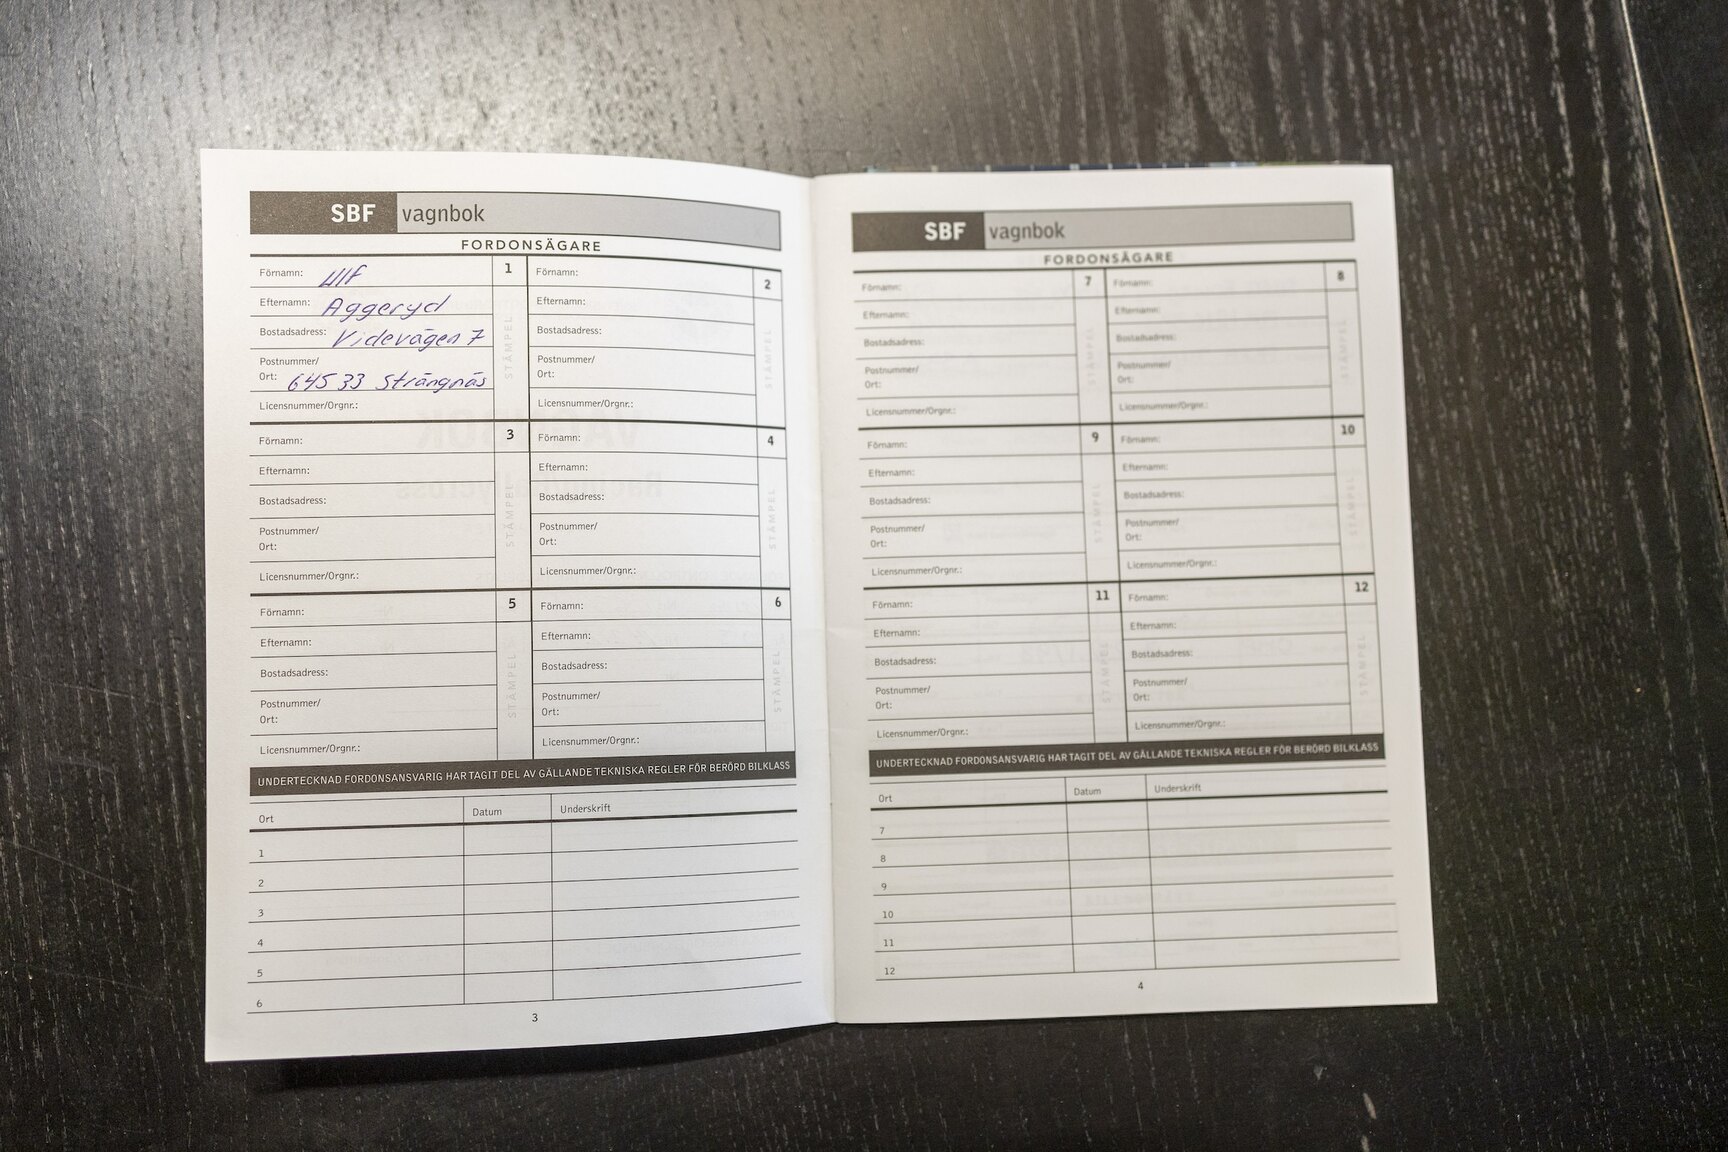 SBF vagnbok
FORDONSÄGARE
Förnamn: Ulf
1
Efternamn: Aggeryd
Bostadsadress: Videvägen 7
Postnummer/
Ort: 645 33 Strängnäs
Licensnummer/Orgnr.:
STÄMPEL
Förnamn:
2
Efternamn:
Bostadsadress:
Postnummer/
Ort:
Licensnummer/Orgnr.:
STÄMPEL
Förnamn:
3
Efternamn:
Bostadsadress:
Postnummer/
Ort:
Licensnummer/Orgnr.:
STÄMPEL
Förnamn:
4
Efternamn:
Bostadsadress:
Postnummer/
Ort:
Licensnummer/Orgnr.:
STÄMPEL
Förnamn:
5
Efternamn:
Bostadsadress:
Postnummer/
Ort:
Licensnummer/Orgnr.:
STÄMPEL
Förnamn:
6
Efternamn:
Bostadsadress:
Postnummer/
Ort:
Licensnummer/Orgnr.:
STÄMPEL
UNDERTECKNAD FORDONSANSVARIG HAR TAGIT DEL AV GÄLLANDE TEKNISKA REGLER FÖR BERÖRD BILKLASS
Ort Datum Underskrift
1
2
3
4
5
6
3
SBF vagnbok
FORDONSÄGARE
Förnamn:
7
Efternamn:
Bostadsadress:
Postnummer/
Ort:
Licensnummer/Orgnr.:
STÄMPEL
Förnamn:
8
Efternamn:
Bostadsadress:
Postnummer/
Ort:
Licensnummer/Orgnr.:
STÄMPEL
Förnamn:
9
Efternamn:
Bostadsadress:
Postnummer/
Ort:
Licensnummer/Orgnr.:
STÄMPEL
Förnamn:
10
Efternamn:
Bostadsadress:
Postnummer/
Ort:
Licensnummer/Orgnr.:
STÄMPEL
Förnamn:
11
Efternamn:
Bostadsadress:
Postnummer/
Ort:
Licensnummer/Orgnr.:
STÄMPEL
Förnamn:
12
Efternamn:
Bostadsadress:
Postnummer/
Ort:
Licensnummer/Orgnr.:
STÄMPEL
UNDERTECKNAD FORDONSANSVARIG HAR TAGIT DEL AV GÄLLANDE TEKNISKA REGLER FÖR BERÖRD BILKLASS
Ort Datum Underskrift
7
8
9
10
11
12
4